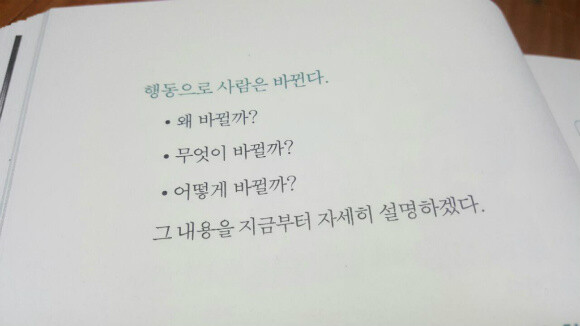 행동으로 사람은 바뀐다.
• 왜 바뀔까?
• 무엇이 바뀔까?
• 어떻게 바뀔까?
그 내용을 지금부터 자세히 설명하겠다.